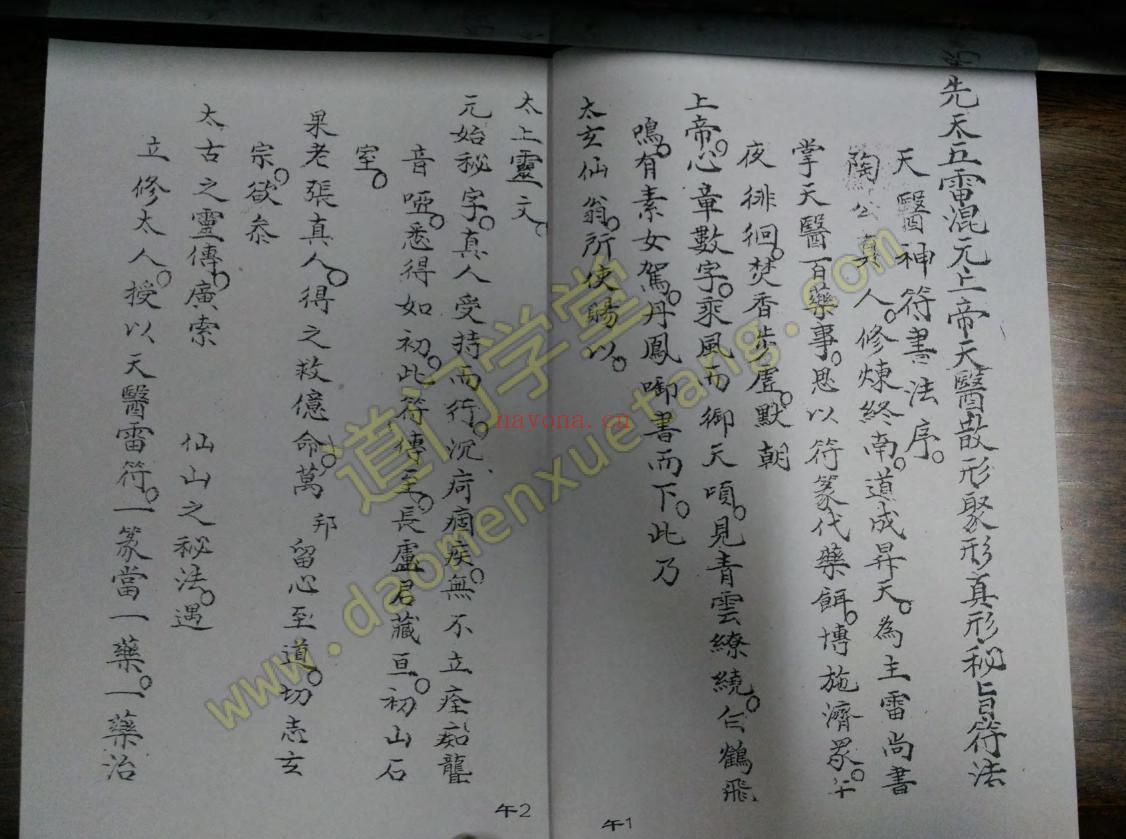 先天五雷混元上帝天醫散形聚形真形秘旨符法
天醫神符書法序。
陶公真人。修煉終南。道成昇天。為主雷尚書
掌天醫百藥事。思以符篆代藥餌。博施濟眾。午
夜徘徊。焚香步虛。默朝
上帝。心章數字。乘風而御天頃。見青雲繚繞。仙鶴飛
鳴。有素女駕。丹鳳啣書而下。此乃
太玄仙翁。所使賜以。
午1
太上靈文。
元始秘字。真人受持而行。沉疴痼疾。無不立痊。痴聾
音啞。悉得如初。此符傳至。長盧君藏亘。初山石
室。
果老張真人。得之救億命。萬邦留心至道。切志玄
宗。欲叅
太古之靈傳。廣索 仙山之秘法。遇
立修太人。授以天醫雷符。一篆當一藥。一藥治
午2
道门学堂
www.daomenxuetang.com
nayona.cn